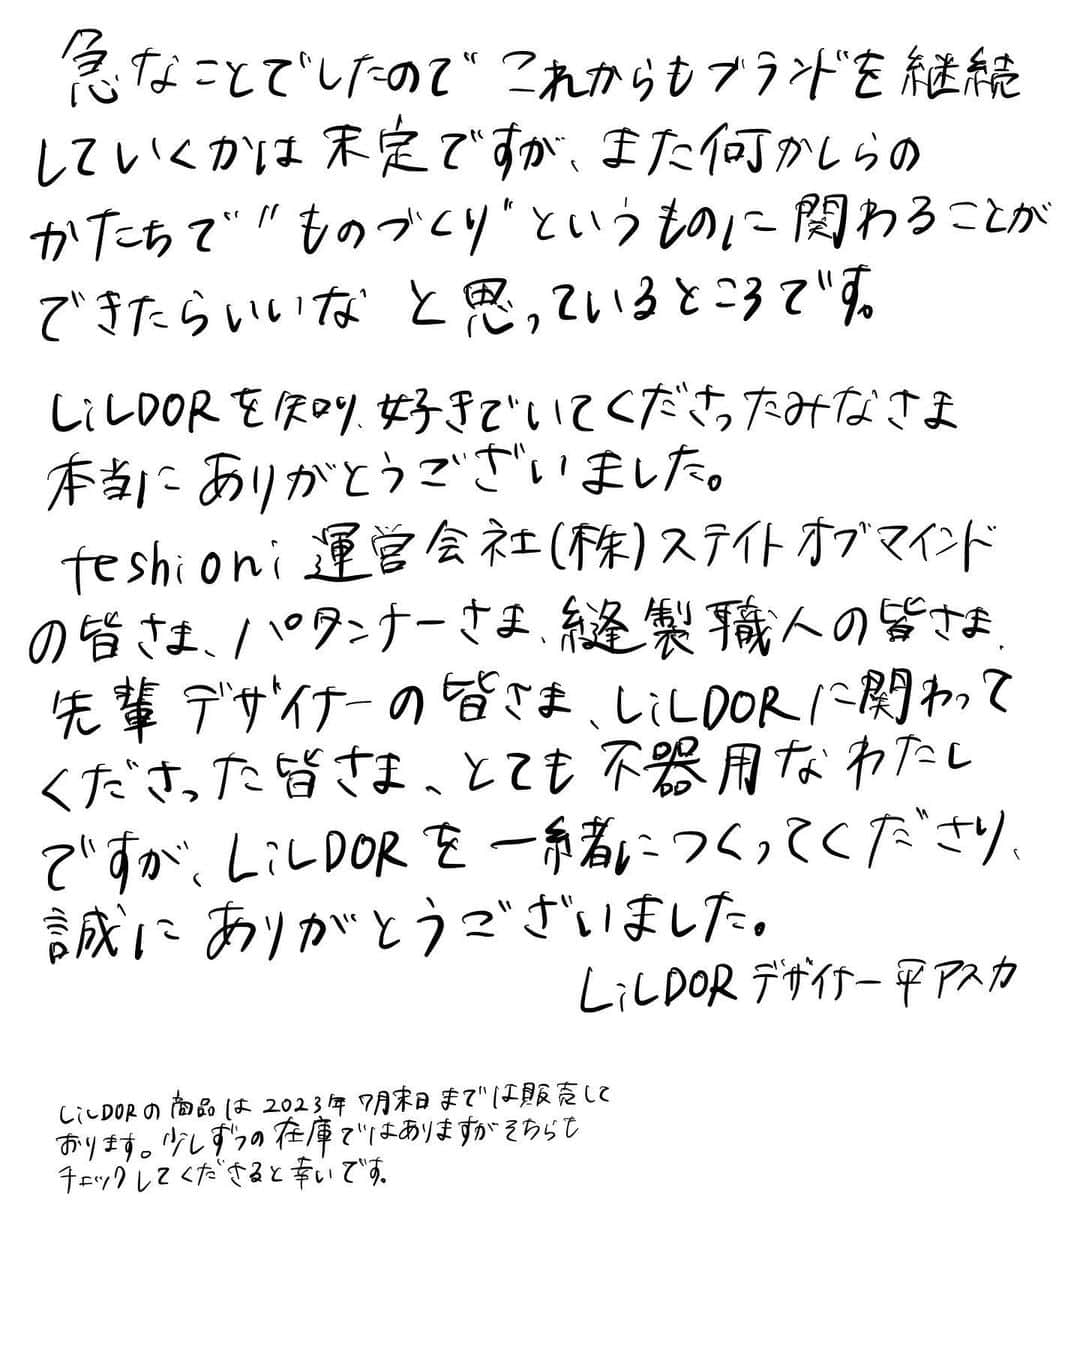 急なことでしたので これからもブランドを継続
していくかは 未定ですが、また何かしらの
かたちで"ものづくり"というものに関わることが
できたらいいな と思っているところです。
LiLDORを知り、好きでいてくださったみなさま
本当に ありがとうございました。
teshioni 運営会社(株)ステイトオブマインド
の皆さま、パタンナーさま、縫製職人の皆さま、
先輩デザイナーの皆さま、LiLDORに関わって
くださった皆さま、とても不器用なわたし
ですが、LiLDORを一緒につくってくださり、
誠に ありがとうございました。
LiLDOR デザイナー 平アスカ
LiLDORの商品は 2023年7月末日までは販売して
おります。少しずつの在庫ではありますがそちらも
チェックしてくださると幸いです。